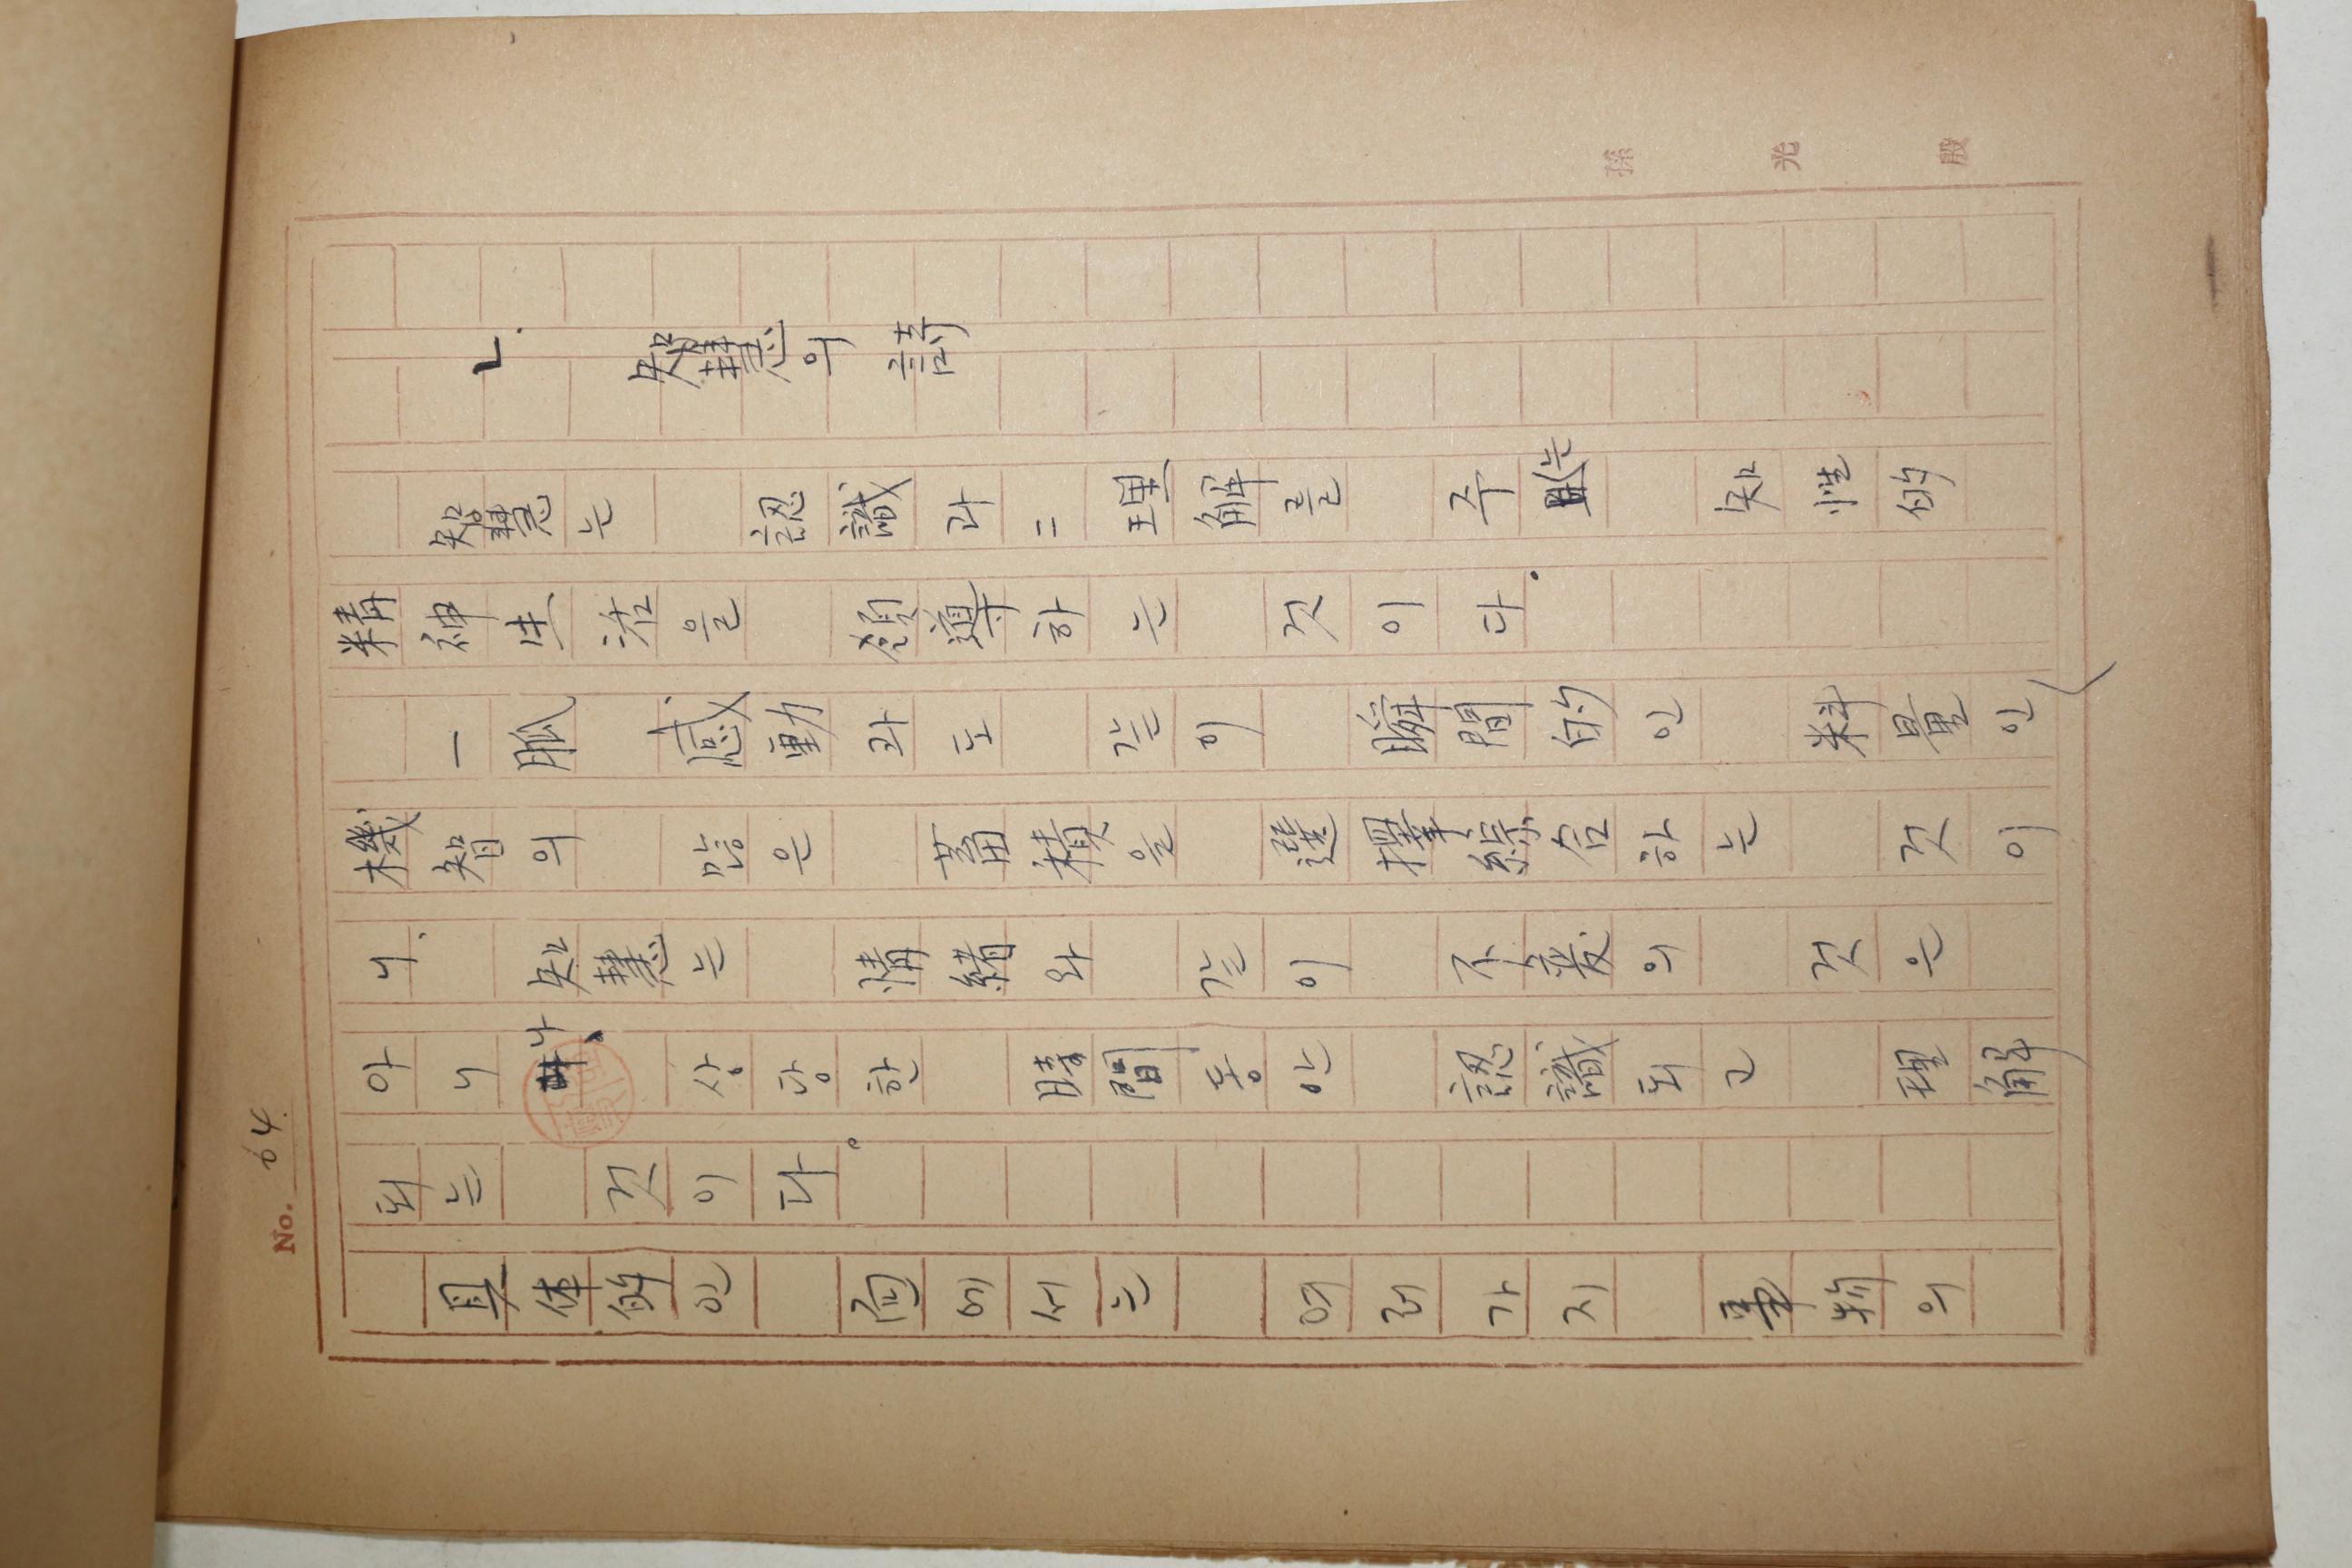 No. 64.
ㄴ. 智慧의 詩
智慧는 認識과 = 理解를 주는 知性的
精神生活을 領導하는 것이다.
一脈 感動과도 같이 瞬間的인 料量인
機智의 많은 蓄積을 選擇綜合하는 것이
니, 知慧는 情緖와 같이 不変의 것은
아니나, 상당한 時間동안 認識되고 理解
되는 것이다.
具体的인 面에서는 여러가지 事物의
孫光殷